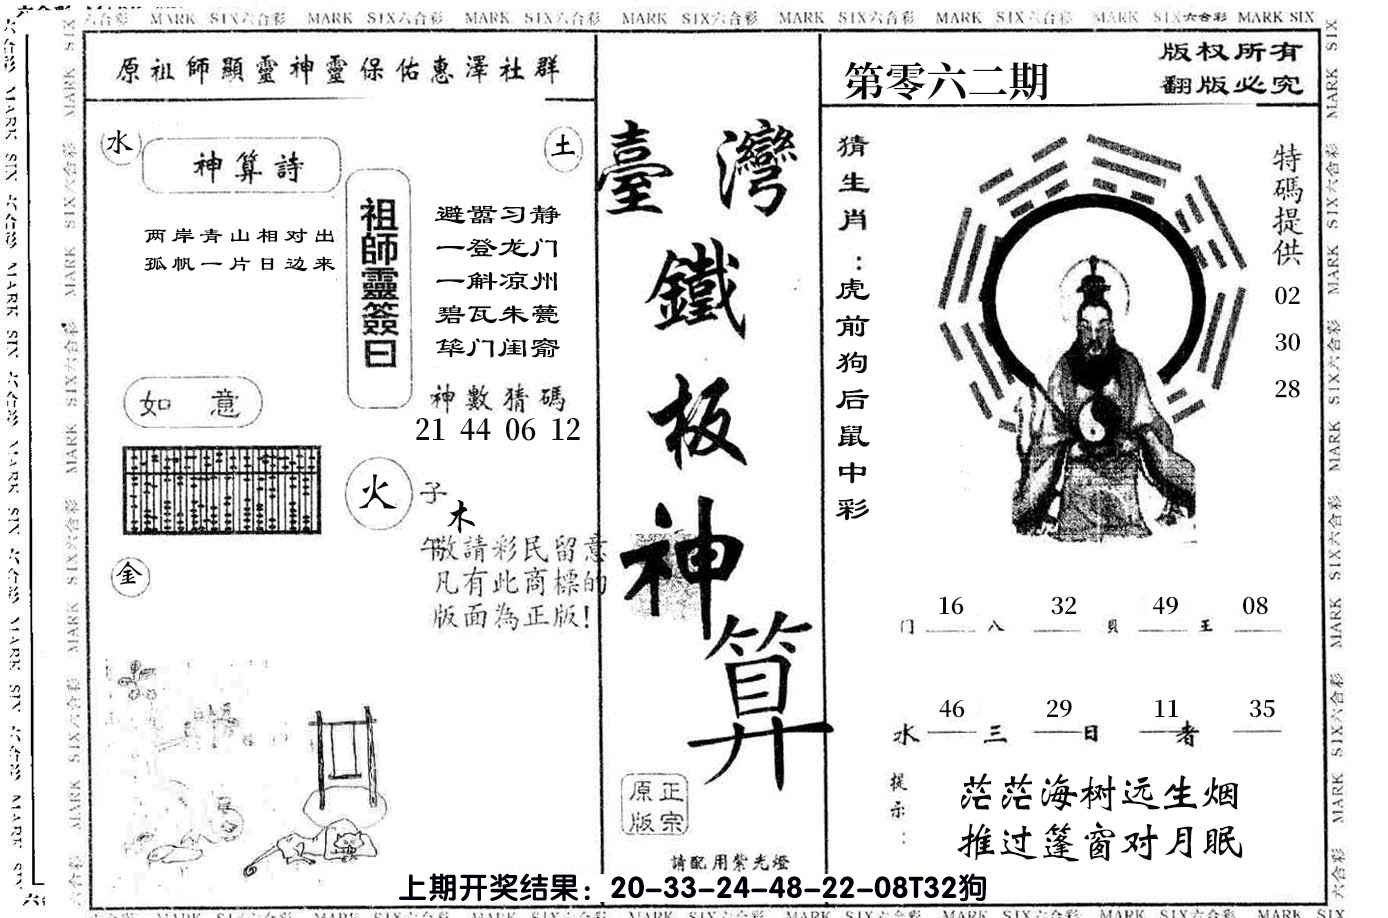 MARK SIX六合彩 MARK SIX六合彩 MARK SIX六合彩 MARK SIX六合彩 MARK SIX六合彩 MARK SIX六合彩 MARK SIX六合彩 MARK SIX
原祖師顯靈神靈保佑惠澤社群
水
神算詩
土
两岸青山相对出
孤帆一片日边来
祖師靈簽曰
避嚣习静
一登龙门
一斛凉州
碧瓦朱甍
筚门闺窬
神數猜碼
21 44 06 12
如意
火
子
木
午
敬請彩民留意
凡有此商標的
版面為正版!
金
臺灣
鐵
板
神
算
正宗
原版
請配用紫光燈
第零六二期
版权所有
翻版必究
猜生肖:虎前狗后鼠中彩
特碼提供
02
30
28
16 32 49 08
门 八 貝 王
46 29 11 35
水 三 日 者
提示:
茫茫海树远生烟
推过篷窗对月眠
上期开奖结果：20-33-24-48-22-08T32狗